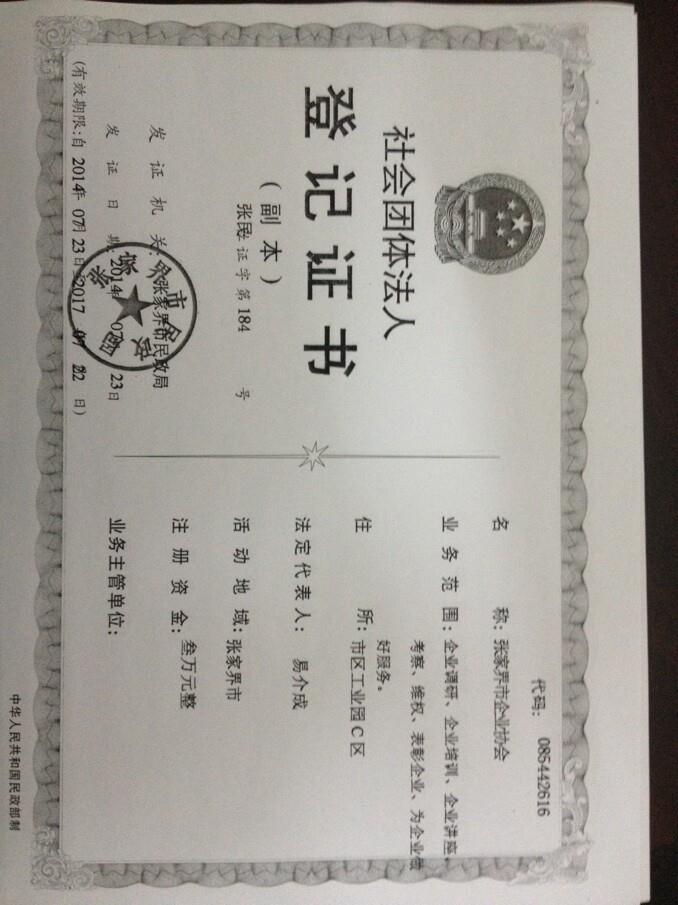 社会团体法人
登记证书
(副本)
张民社证字第184 号
发证机关:张家界市民政局
发证日期:2014年 07月 23日
(有效期限:自 2014年 07月 23日至2017 07 22 日)
代码: 085442616
名称:张家界市企业协会
业务范围:企业调研、企业培训、企业讲座、
考察、维权、表彰企业、为企业做
好服务。
住所:市区工业园C区
法定代表人: 易介成
活动地域:张家界市
注册资金:叁万元整
业务主管单位:
中华人民共和国民政部制